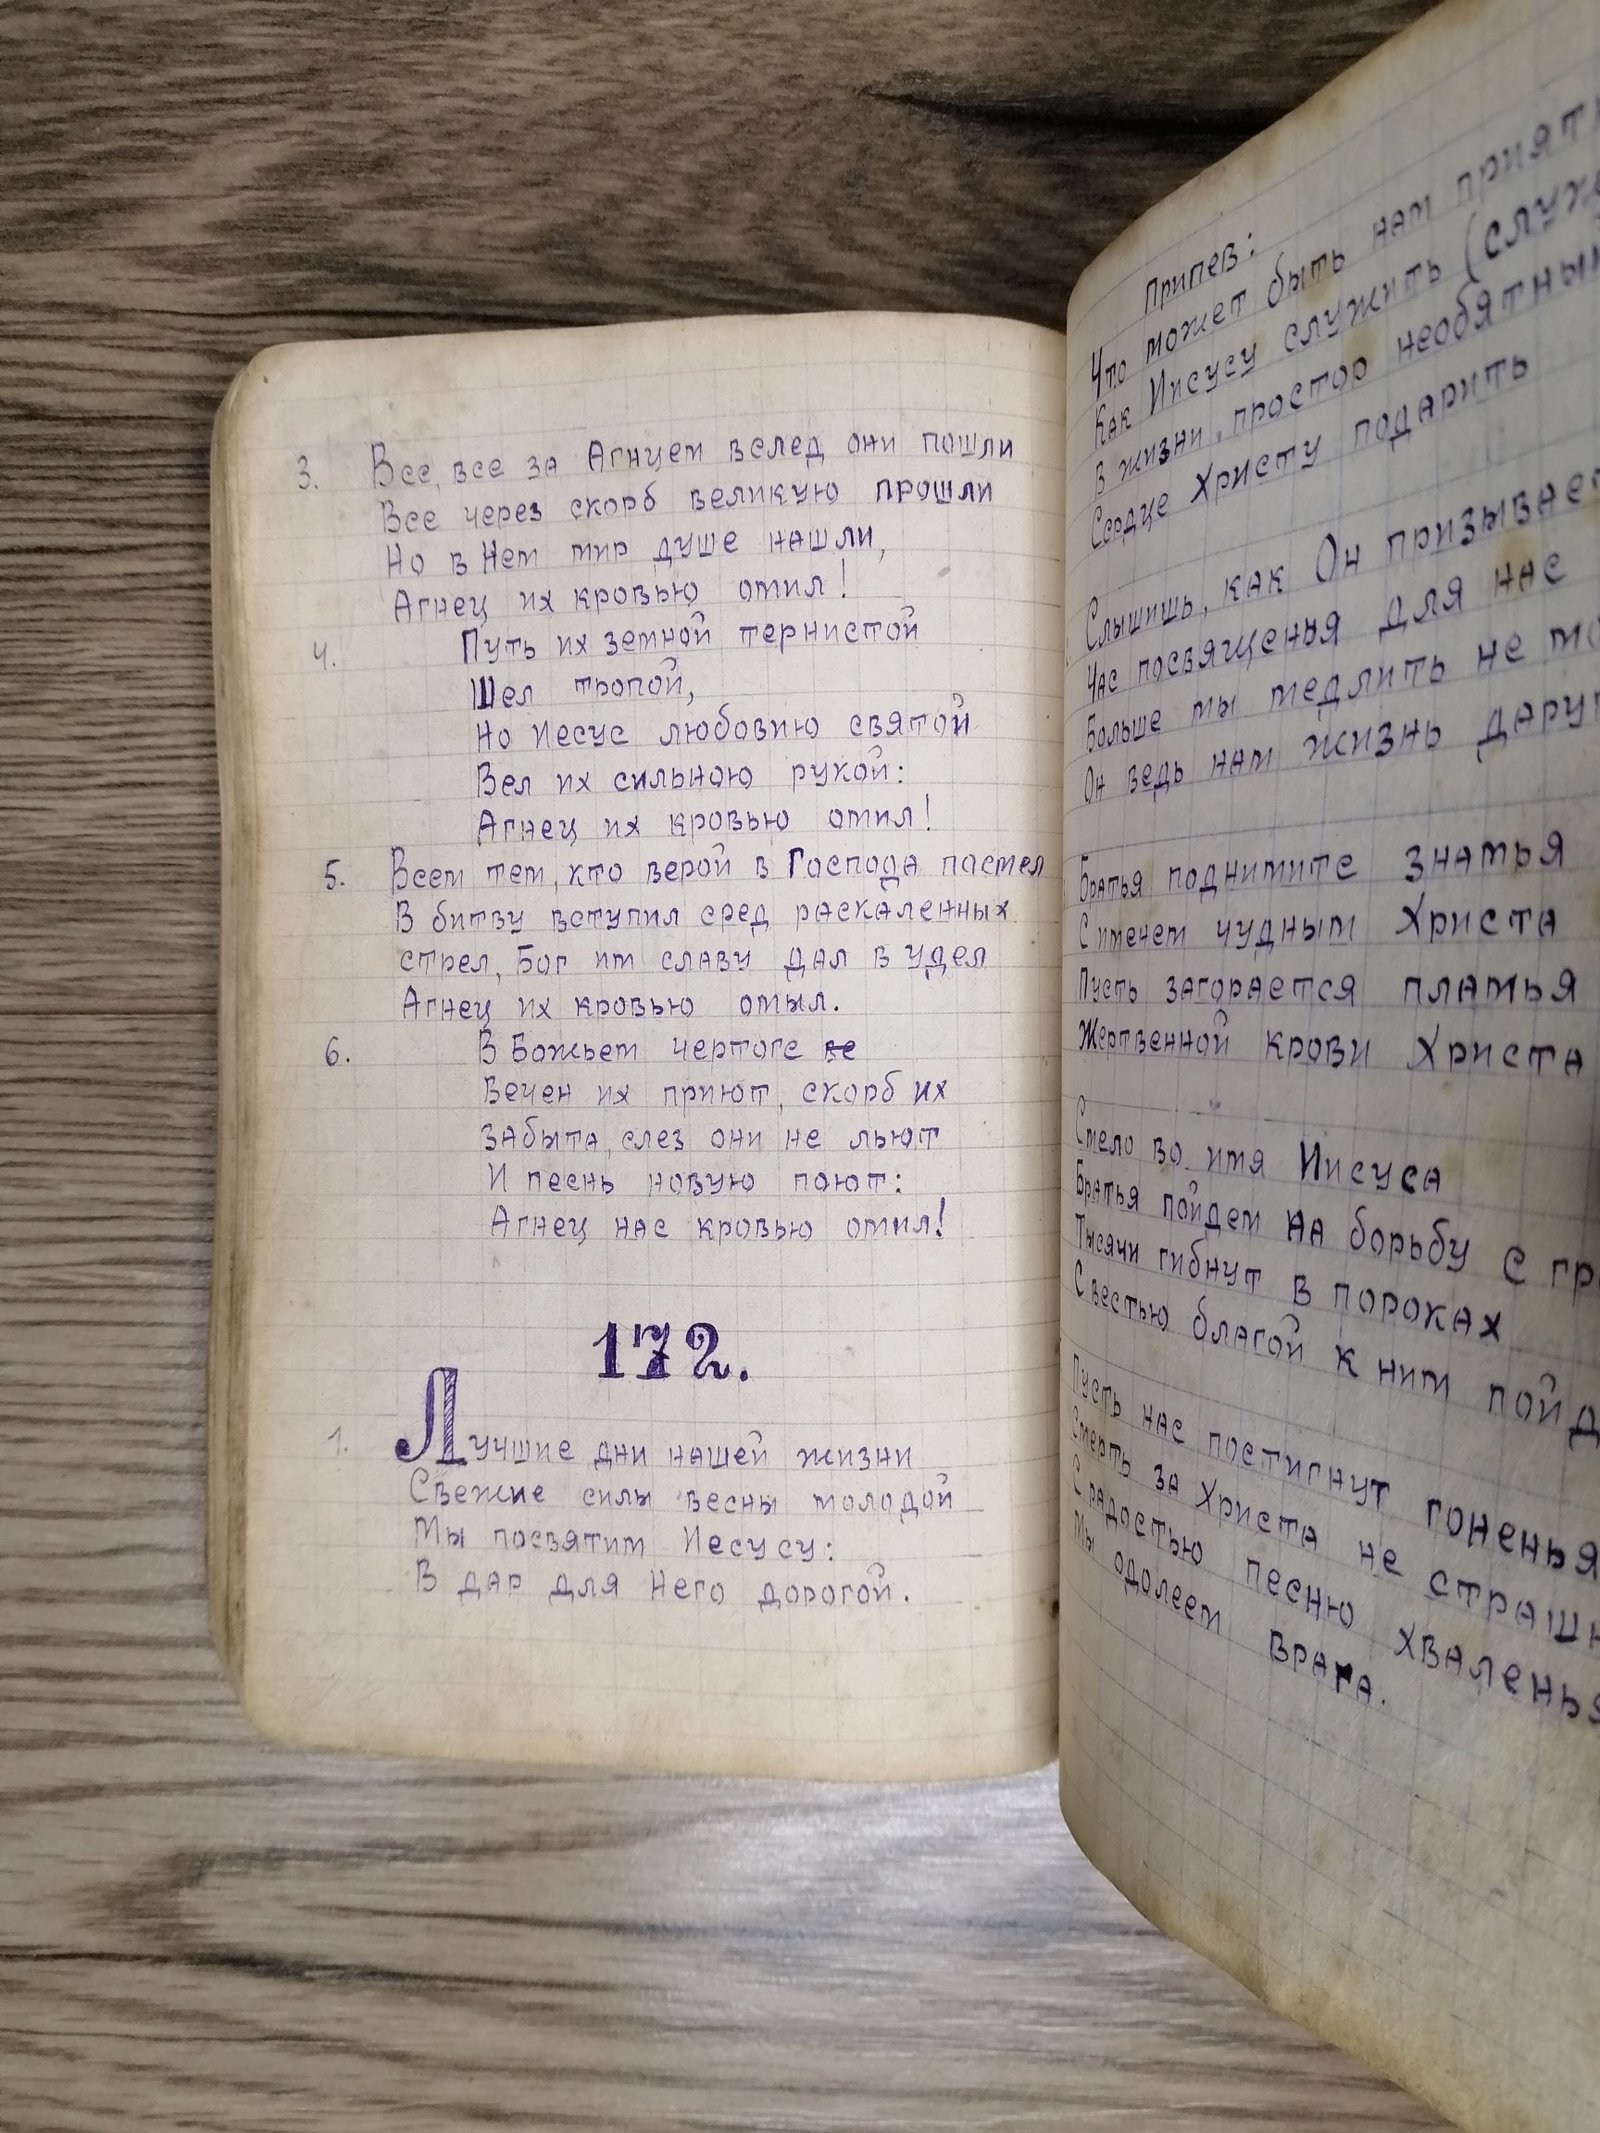 3. Все, все за Агнцем вслед они пошли
Все через скорб великую прошли
Но в Нем мир душе нашли,
Агнец их кровью омил!
4. Путь их земной тернистой
Шел тропой,
Но Иесус любовию святой
Вел их сильною рукой:
Агнец их кровью омил!
5. Всем тем, кто верой в Господа
В битву вступил сред раскаленных
стрел, Бог им славу дал в удел
Агнец их кровью омыл.
6. В Божьем чертоге ве
вечен их приют, скорб их
забыта, слез они не льют
И песнь новую поют:
Агнец нас кровью омил!
172.
1. Лучшие дни нашей жизни
Свежие силы весны молодой
Мы посвятим Иесусу:
В дар для Него дорогой.
Припев:
Что может быть нам
Как Иисусу служить
В жизни, простор
Сердце Христу подарить
Слышишь, как Он
Час посвященья для нас
Больше мы медлить не
Он ведь нам жизнь
Братья поднимите знамья
С именем чудным Христа
Пусть загорается пламья
Жертвенной крови Христа
Смело во имя Иисуса
Братья пойдем на борьбу с
Тысячи гибнут в пороках
С вестью благой к ним
Пусть нас постигнут гоненья
Смерть за Христа не
С радостью песню хваленья
Мы одолеем врага.